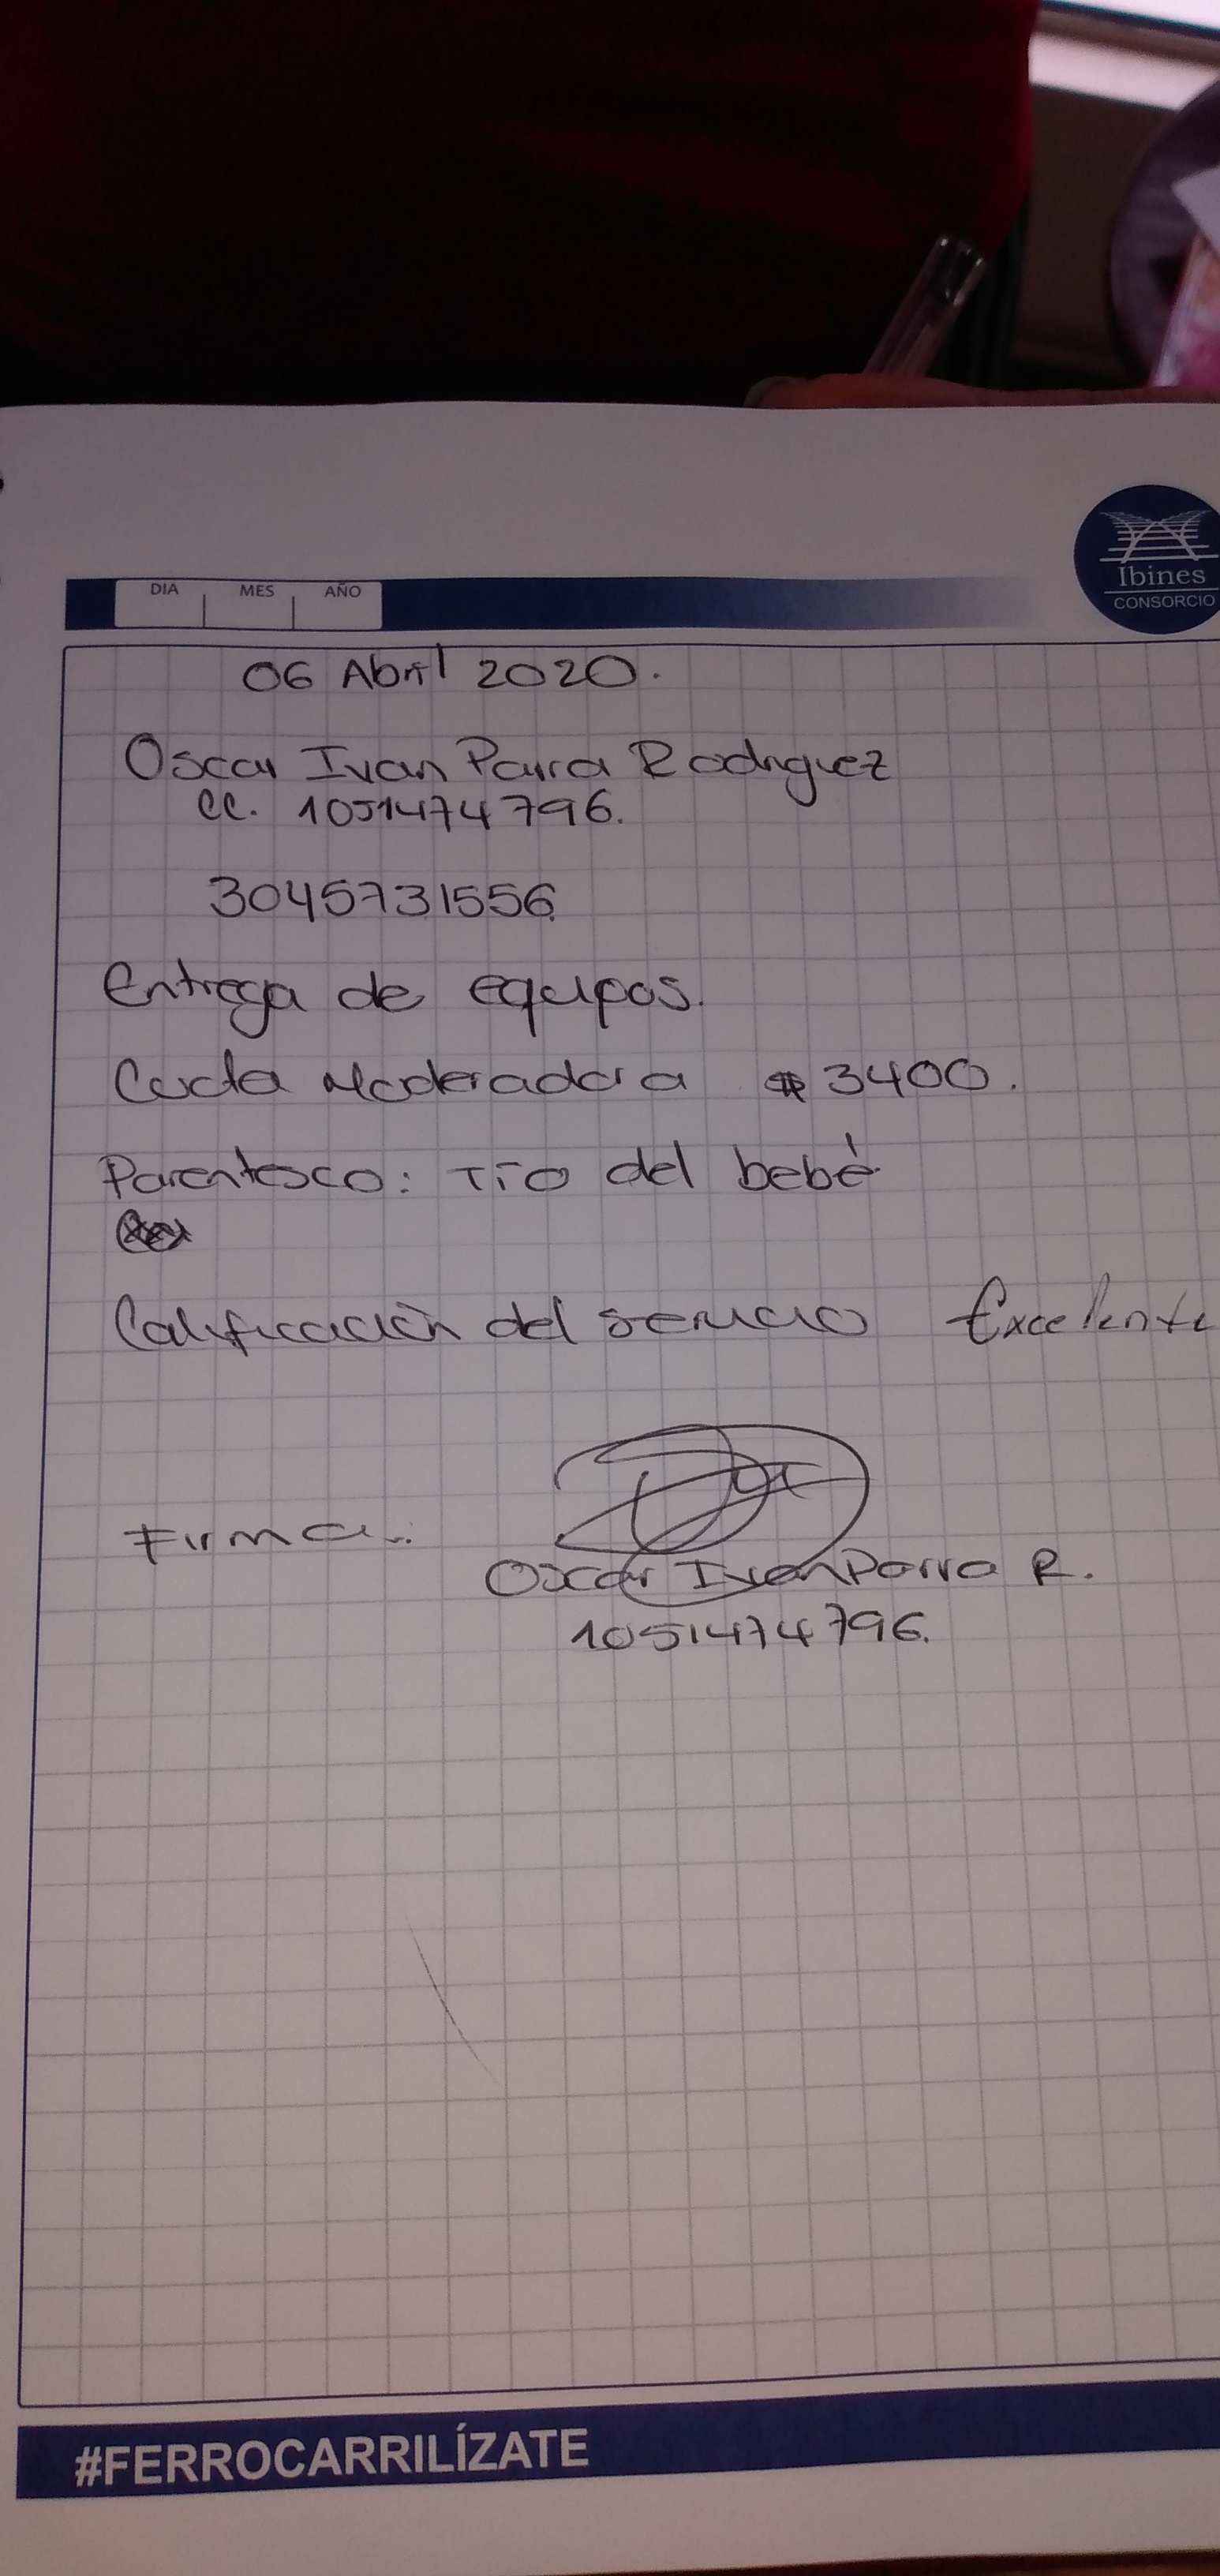 Ibines
CONSORCIO
DIA MES AÑO
06 Abril 2020.
Oscar Ivan Parra Rodriguez
CC. 1051474796.
3045731556
Entrega de equipos.
Cuota Moderadora $3400.
Parentesco: Tío del bebé
Calificación del servicio Excelente
Firma:
Oscar Ivan Parra R.
1051474796.
#FERROCARRILÍZATE